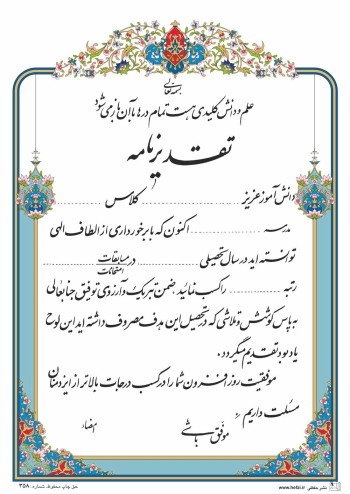 بسمه تعالی
علم و دانش کلیدی هست تمام درها با آن باز می شود
تقدیرنامه
دانش آموز عزیز ........................ کلاس ........................
مدرسه ........................ اکنون که با برخورداری از الطاف الهی
توانسته اید در سال تحصیلی ........................ در مسابقات
امتحانات
رتبه ........................ را کسب نمائید، ضمن تبریک و آرزوی توفیق جنابعالی
به پاس کوشش و تلاشی که در تحصیل این هدف مصروف داشته اید این لوح
یادبود تقدیم میگردد.
موفقیت روزافزون شما را در کسب درجات بالاتر از ایزد منان
مسئلت داریم
موفق باشی
امضاء
حق چاپ محفوظ. شماره: ۳۵۸
نشر حفظی www.hefzi.ir